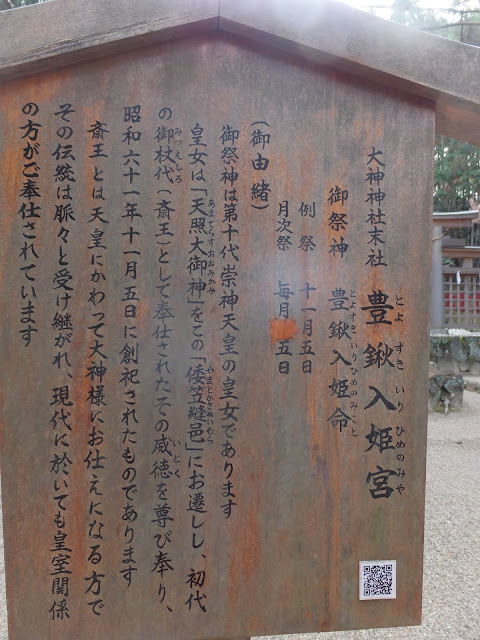 大神神社末社 豊鍬入姫宮
とよ すき いり ひめのみや
御祭神 豊鍬入姫命
とよすきいりひめのみこと
例祭 十一月五日
月次祭 毎月 五日
(御由緒)
御祭神は第十代崇神天皇の皇女であります
皇女は「天照大御神」をこの「倭笠縫邑」にお遷しし、初代
あまてらすおおみかみ やまとかさぬいむら
の御杖代(斎王)として奉仕されたその威徳を尊び奉り、
みつえしろ いとく
昭和六十一年十一月五日に創祀されたものであります
斎王とは天皇にかわって大神様にお仕えになる方で
その伝統は脈々と受け継がれ、現代に於いても皇室関係
の方がご奉仕されています